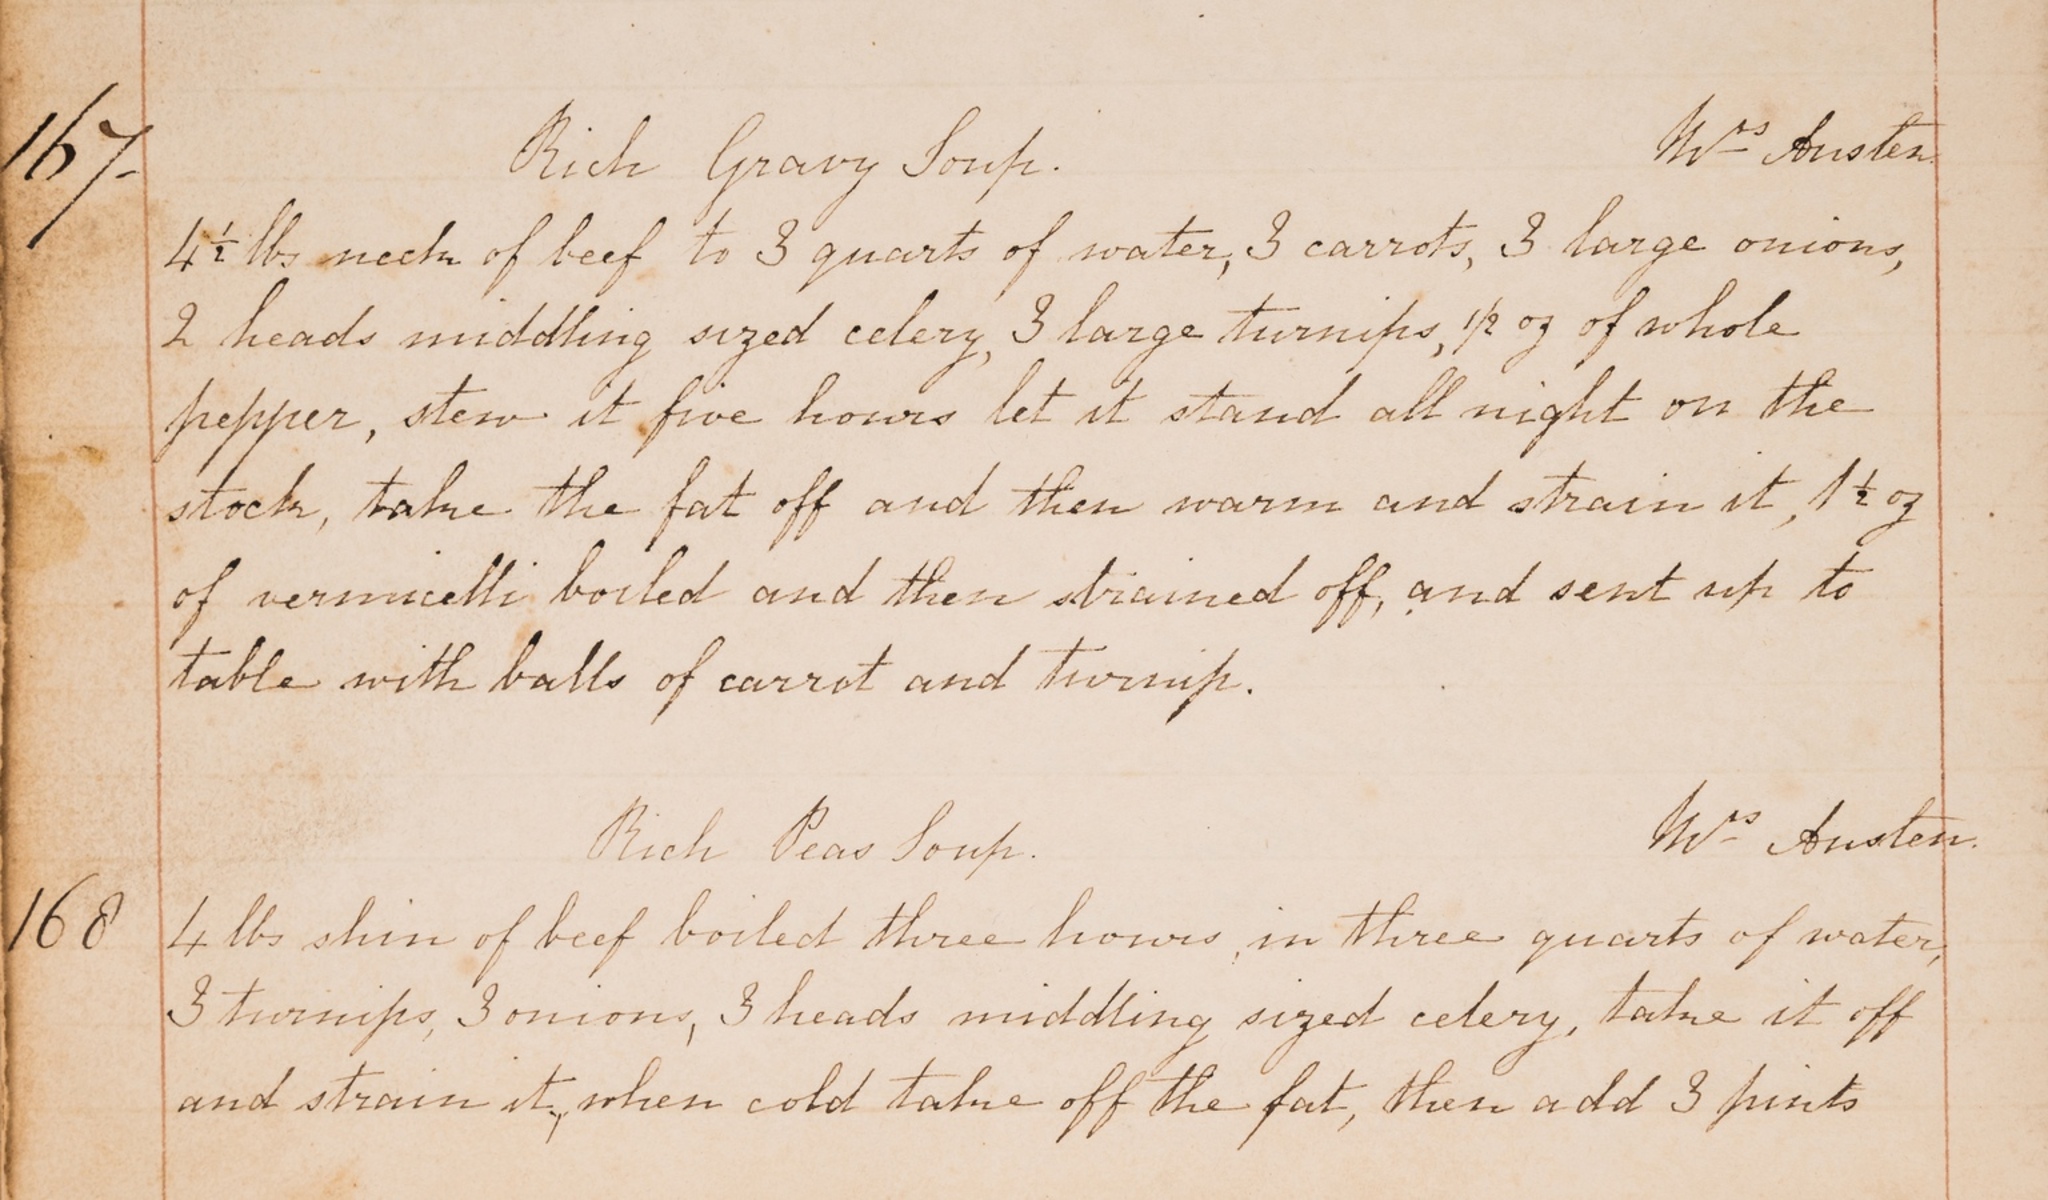 167.
Rich Gravy Soup. Mrs Austen.
4½ lbs neck of beef to 3 quarts of water, 3 carrots, 3 large onions,
2 heads middling sized celery, 3 large turnips, 1/2 oz of whole
pepper, stew it five hours let it stand all night on the
stock, take the fat off and then warm and strain it, 1½ oz
of vermicelli boiled and then strained off, and sent up to
table with balls of carrot and turnip.
Rich Peas Soup. Mrs Austen.
168
4 lbs shin of beef boiled three hours, in three quarts of water,
3 turnips, 3 onions, 3 heads middling sized celery, take it off
and strain it, when cold take off the fat, then add 3 pints